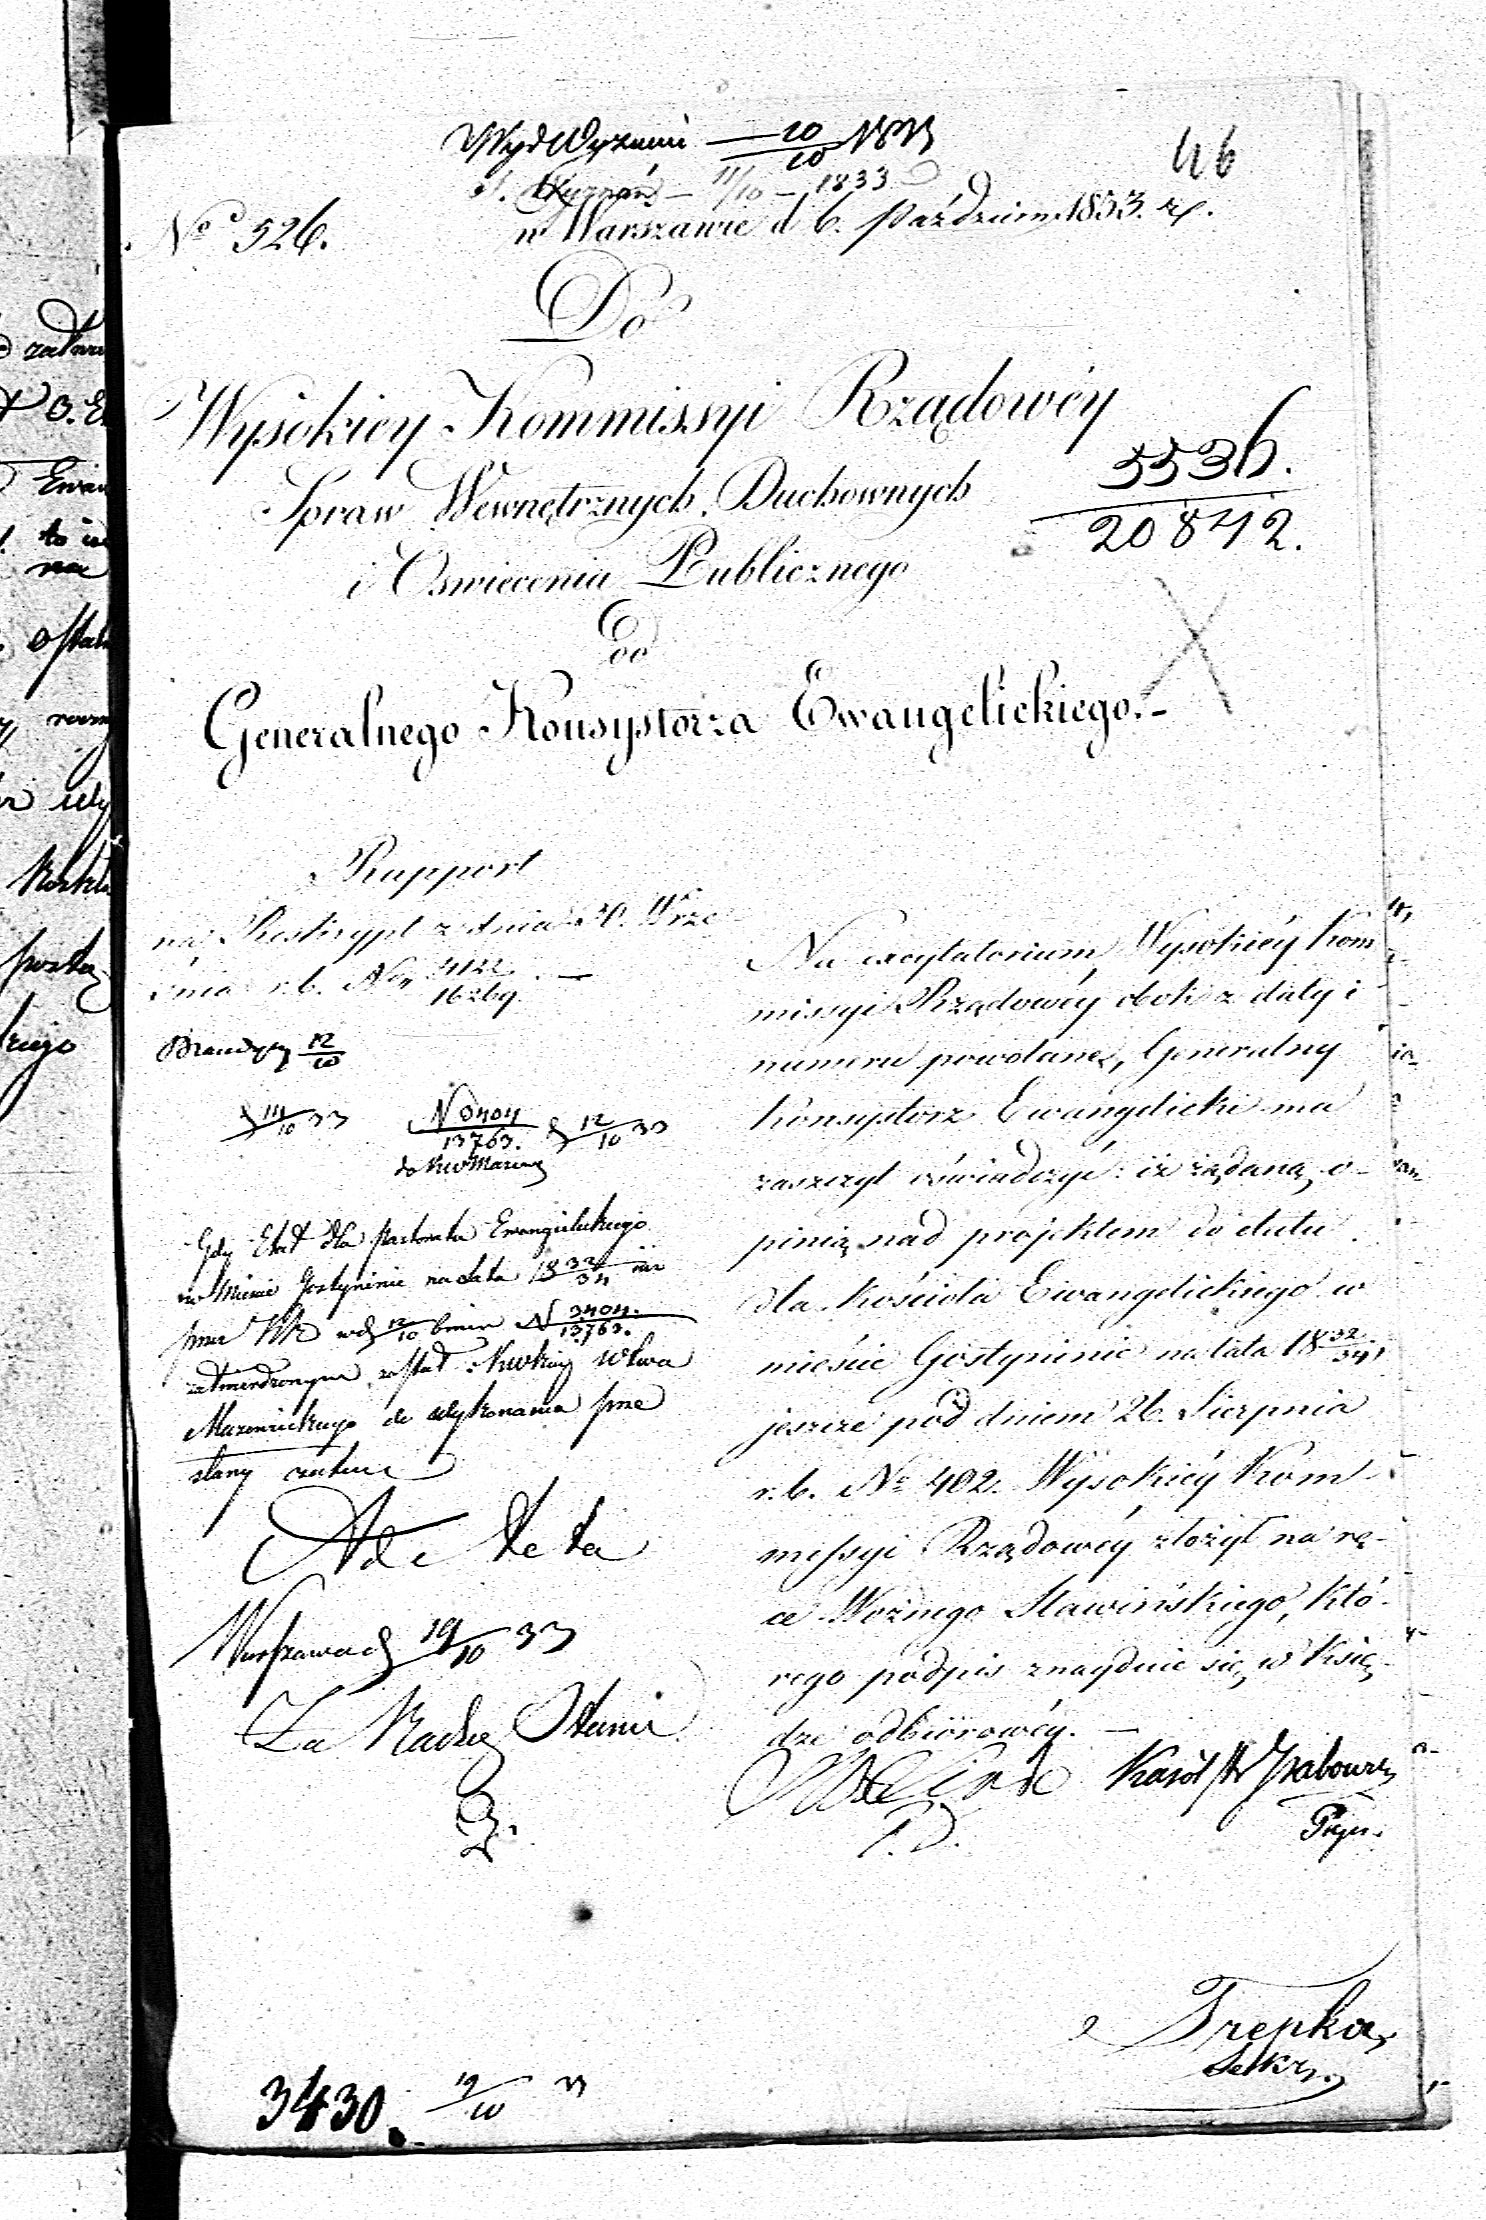 46
Wyd Wyznań 10/10 1833
11/10 - 1833
No 526.
w Warszawie d 6. Październ. 1833. r.
Do
Wysokiey Kommissyi Rządowéy
Spraw Wewnętrznych, Duchownych
i Oswiecenia Publicznego
5536.
20842.
od
Generalnego Konsystorza Ewangelickiego.-
Rapport
na Reskrypt z dnia 30. Wrze
śnia r.b. Nr 4122/16269. —
12/10
14/10 33
N 3404/13763.
12/10 33
Gdy Etat dla pastorata Ewangielickiego
w Mieście Gostyninie na lata 18 32/34 już
przez KR wd 12/10 bmca N 3404./13763.
zatwierdzonym został i
Mazowieckiego do wykonania prze
słany
Ad Acta
Warszawa d 19/10 33
Za Radcę Stanu
Na excytatorium Wysokiéy Kom
missyi Rządowéy obok z daty i
numeru powołane, Generalny
Konsystorz Ewangelicki ma
zaszczyt oświadczyć: iż żądaną o-
pinią nad projektem do etatu
dla Kościoła Ewangelickiego w
mieście Gostyninie na lata 18 32/34,
jeszcze pod dniem 26. Sierpnia
r.b. No 402. Wysokiéy Kom-
missyi Rządowéy złożył na rę-
ce Woźnego Sławińskiego, któ-
rego podpis znayduie się w Księ-
dze odbiorowéy. —
Karol
P.D.
Trepka,
Sekr.
3430.
19/10 33